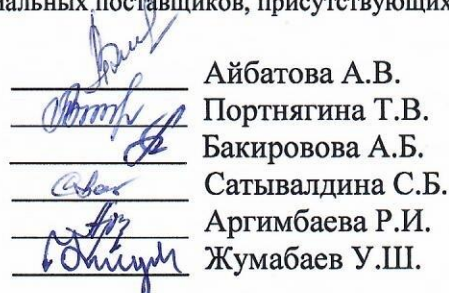 иальных поставщиков, присутствующих
Айбатова А.В.
Портнягина Т.В.
Бакировова А.Б.
Сатывалдина С.Б.
Аргимбаева Р.И.
Жумабаев У.Ш.